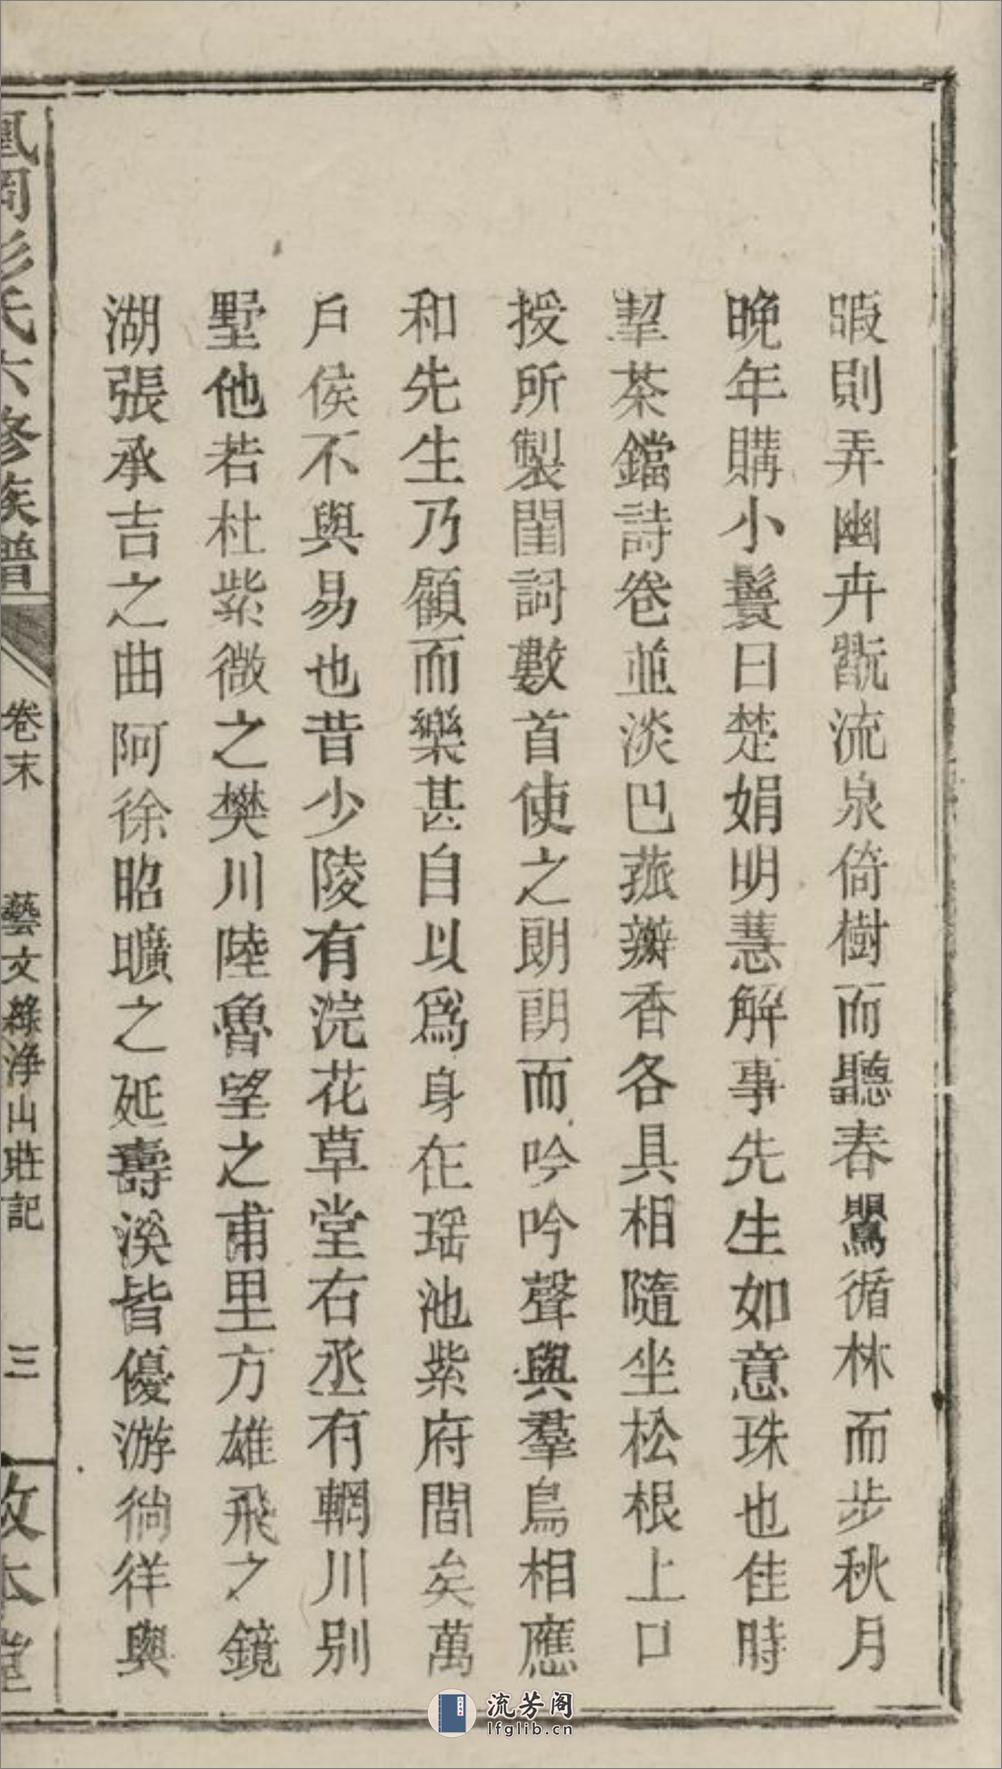 暇則弄幽卉翫流泉倚樹而聽春鸎循林而步秋月
晚年購小鬟曰楚娟明慧解事先生如意珠也佳時
挈茶鐺詩卷並淡巴菰瓣香各具相隨坐松根上口
授所製閨詞數首使之朗朗而吟吟聲與羣鳥相應
和先生乃顧而樂甚自以爲身在瑶池紫府間矣萬
戶侯不與易也昔少陵有浣花草堂右丞有輞川別
墅他若杜紫微之樊川陸魯望之甫里方雄飛之鏡
湖張承吉之曲阿徐昭曠之延壽溪皆優游徜徉與
鳳岡彭氏六修族譜
卷末
藝文綠淨山莊記
三
敦本堂
流芳阁
lfglib.cn